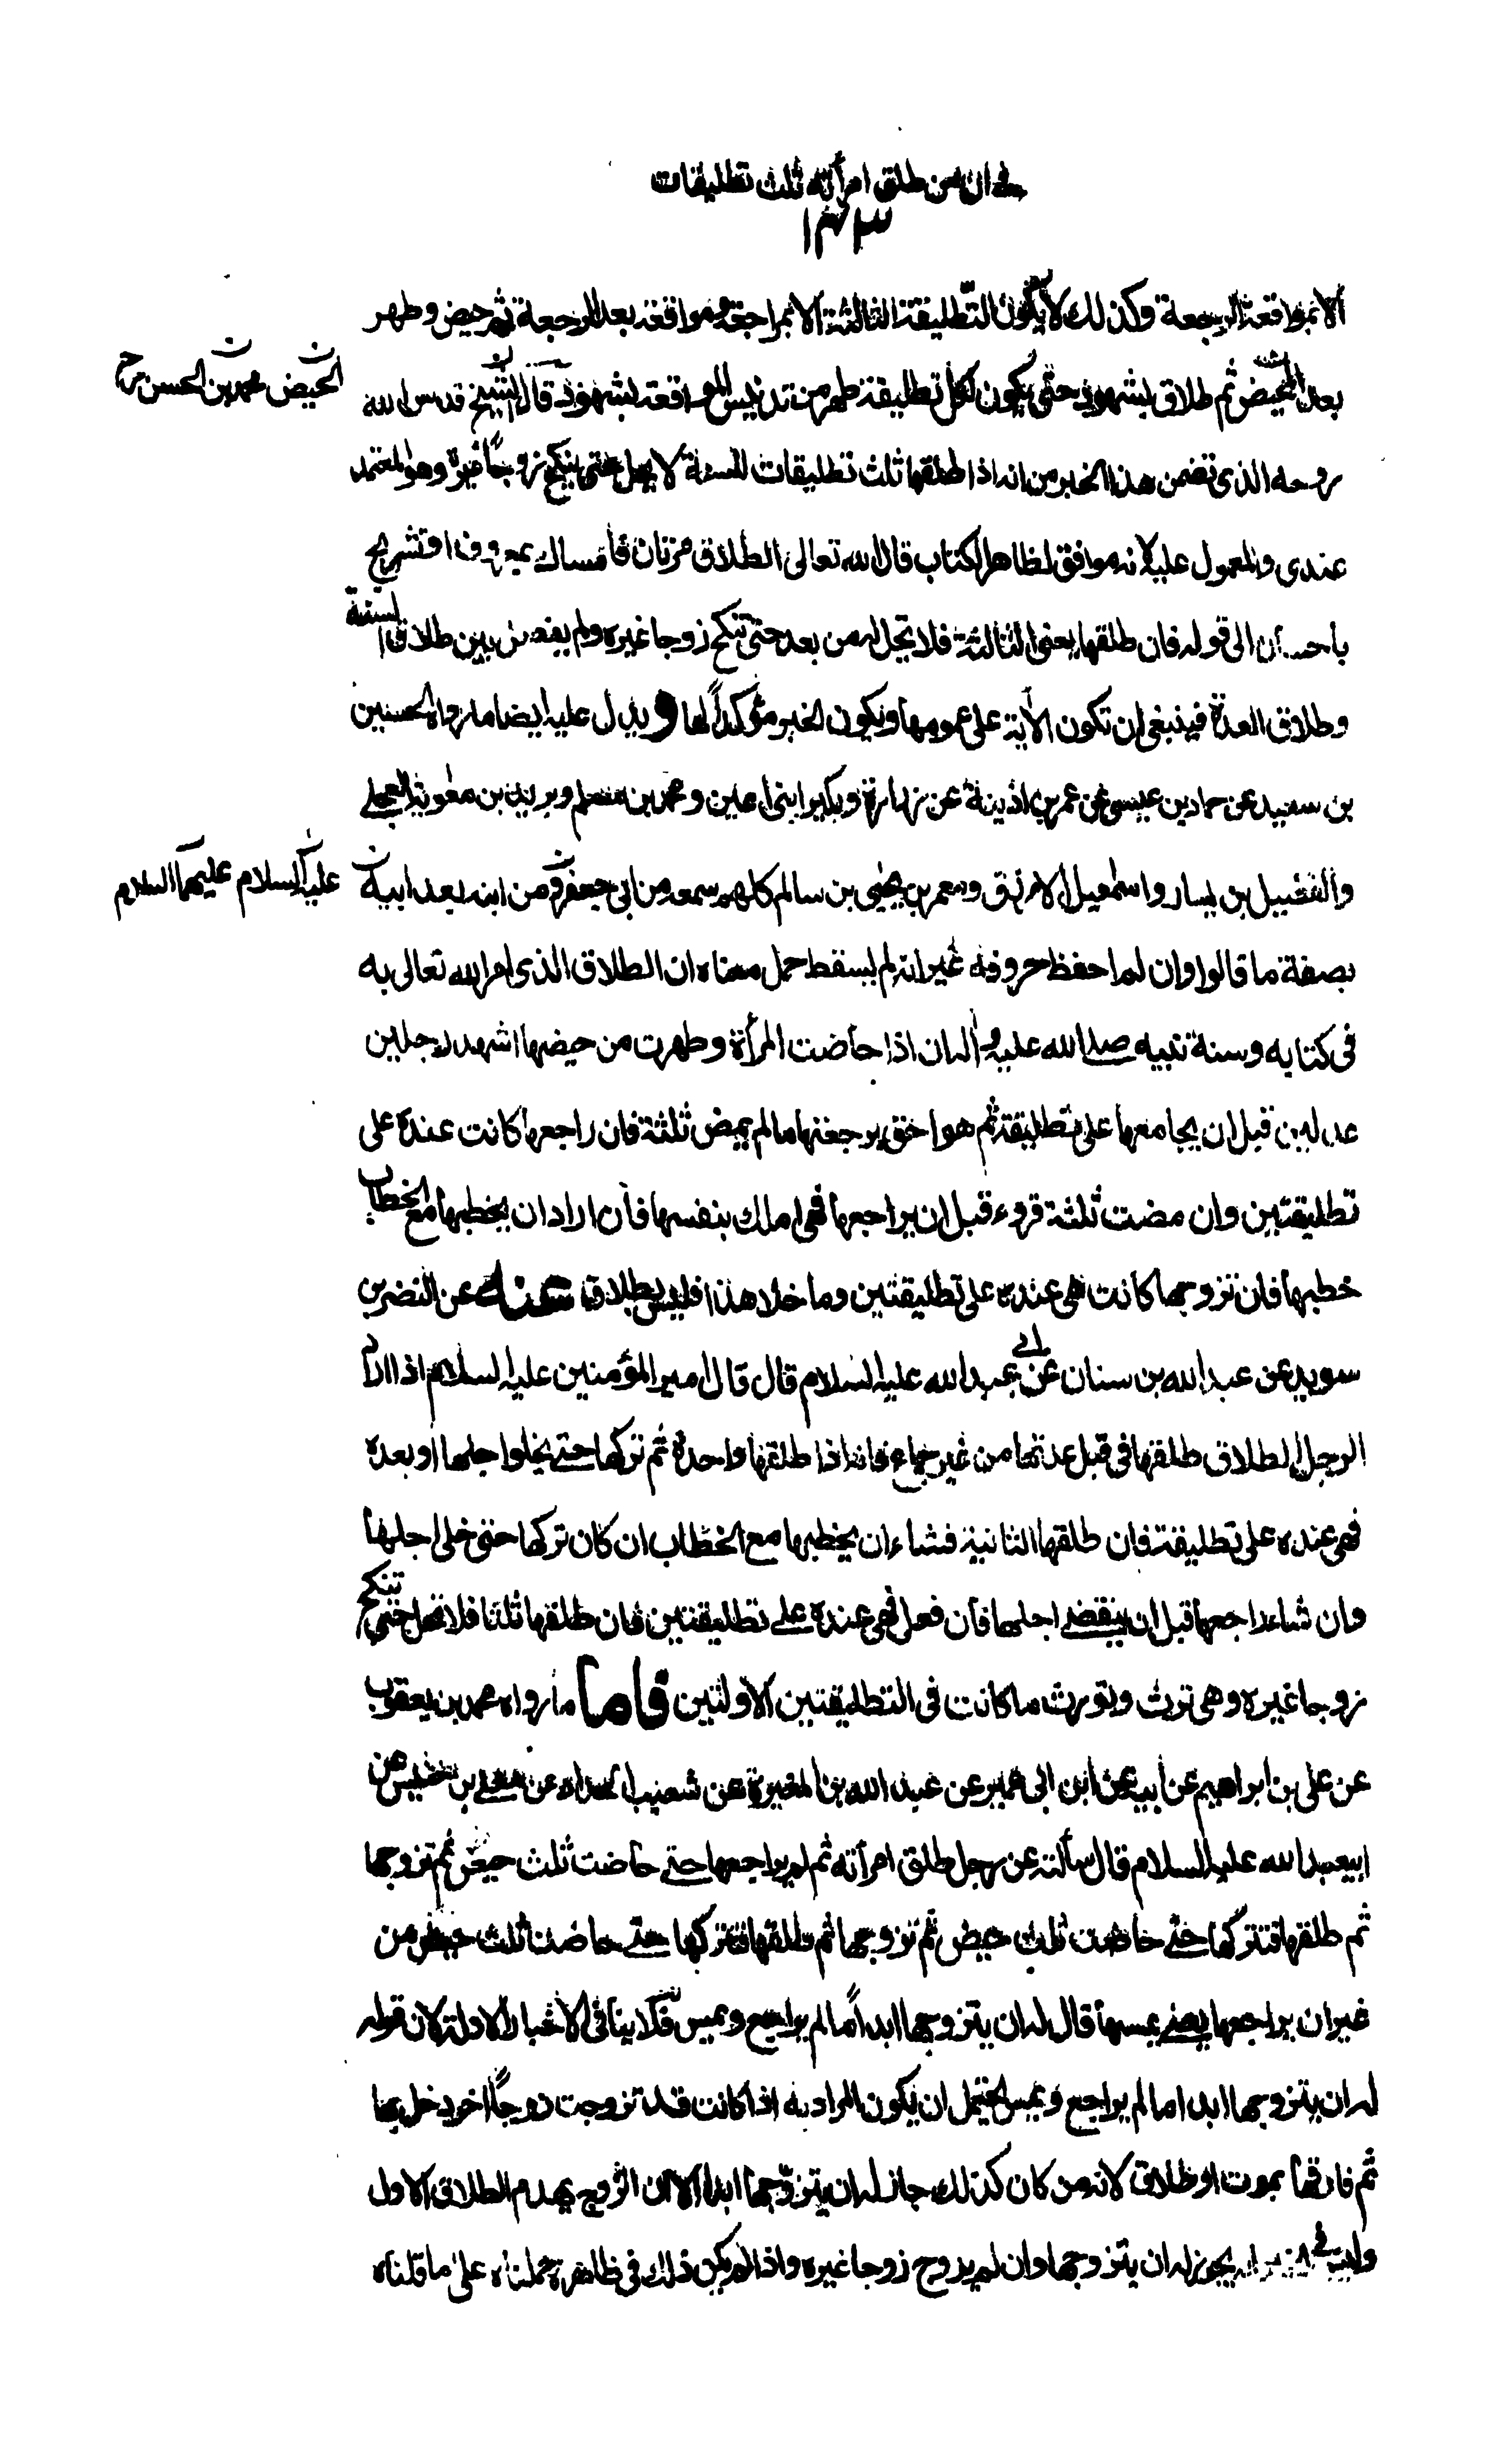 فى ان من طلق امرأته ثلث تطليقات
١٤٣
الا بمواقعة الرجعة وكذلك لا يكون التطليقة الثالثة الا بمراجعة ومواقعة بعد الرجعة ثم حيض وطهر
بعد الحيض ثم طلاق بشهود حتى يكون لكل تطليقة طهر من تدنيس المواقعة بشهود قال الشيخ قدس الله
الحيض محمد بن الحسن رح
روحه الذى تضمن هذا الخبر من انه اذا طلقها ثلث تطليقات للسنة لا يحل حتى ينكح زوجاً غيره وهو المعتمد
عندى والمعمول عليه لانه موافق لظاهر الكتاب قال الله تعالى الطلاق مرتان فأمساك بمعروف او تسريح
بأحسان الى قوله فان طلقها يعنى الثالثة فلا تحل له من بعد حتى تنكح زوجا غيره ولم يفصل بين طلاق السنة
وطلاق العدة فينبغى ان تكون الآية على عمومها ويكون الخبر مؤكداً لها ويدل عليه ايضا ما رواه الحسين
بن سعيد عن حماد بن عيسى عن عمر بن اذينة عن زرارة وبكير ابنى اعين ومحمد بن مسلم وبريد بن معوية العجلى
والفضيل بن يسار واسمعيل الازرق ومعمر بن يحيى بن سالم كلهم سمعه من ابى جعفر ومن ابنه بعد ابيه
عليه السلام عليهما السلام
بصفة ما قالوا وان لم احفظ حروفه غير انه لم يسقط حمل معناه ان الطلاق الذى امر الله تعالى به
فى كتابه وسنة نبيه صلى الله عليه وآله ان اذا حاضت المرأة وطهرت من حيضها اشهد رجلين
عدلين قبل ان يجامعها على تطليقة ثم هو احق برجعتها ما لم يمض ثلثة فان راجعها كانت عنده على
تطليقتين وان مضت ثلثة قروء قبل ان يراجعها فهى املك بنفسها فأن اراد ان يخطبها مع الخطاب
خطبها فان تزوجها كانت هى عنده على تطليقتين وما خلا هذا فليس بطلاق عنه عن النضر بن
سويد عن عبد الله بن سنان عن ابى عبد الله عليه السلام قال قال امير المؤمنين عليه السلام اذا اراد
الرجل الطلاق طلقها فى قبل عدتها من غير جماع فانه اذا طلقها واحدة ثم تركها حتى يخلو اجلها او بعده
فهى عنده على تطليقة فان طلقها الثانية فشاء ان يخطبها مع الخطّاب ان كان تركها حتى خلى اجلها
وان شاء راجعها قبل ان ينقضى اجلها فأن فعل فهى عنده على تطليقتين فان طلقها ثلثا فلا تحل حتى تنكح
زوجا غيره وهى ترث وتورث ما كانت فى التطليقتين الاولتين فاما ما رواه محمد بن يعقوب
عن على بن ابراهيم عن أبيه عن ابن ابى عمير عن عبد الله بن المغيرة عن شعيب الحداد عن معلى بن خنيس عن
ابيعبد الله عليه السلام قال سألته عن رجل طلق امرأته ثم لم يراجعها حتى حاضت ثلث حيض ثم تزوجها
ثم طلقها فتركها حتى حاضت ثلث حيض ثم تزوجها ثم طلقها فتركها حتى حاضت ثلث حيض من
غير ان يراجعها يعنى يمسها قال له ان يتزوجها ابداً ما لم يراجع ويمس فلا ينافى الاخبار الاولة لان قوله
له ان يتزوجها ابدا ما لم يراجع ويمس يحتمل ان يكون المراد به اذا كانت قد تزوجت زوجاً اخر دخل بها
ثم فارقها بموت او طلاق لانه من كان كذلك جاز له ان يتزوجها ابدا لان الزوج يهدم الطلاق الاول
وليس فى انه يجوز له ان يتزوجها وان لم يزوج زوجا غيره واذا لم يكن ذلك فى ظاهره حملناه على ما قلناه